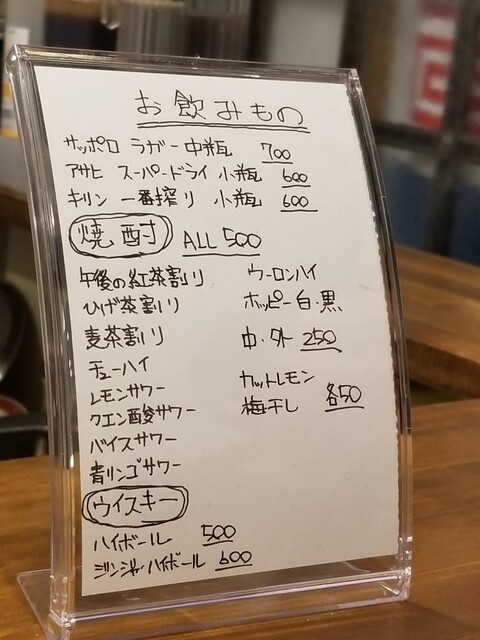 お飲みもの
サッポロ ラガー 中瓶 700
アサヒ スーパードライ 小瓶 600
キリン 一番搾り 小瓶 600
焼酎 ALL 500
午後の紅茶割り
ひげ茶割り
麦茶割り
チューハイ
レモンサワー
クエン酸サワー
バイスサワー
青リンゴサワー
ウーロンハイ
ホッピー 白・黒
中・外 250
カットレモン
梅干し 各50
ウイスキー
ハイボール 500
ジンジャーハイボール 600